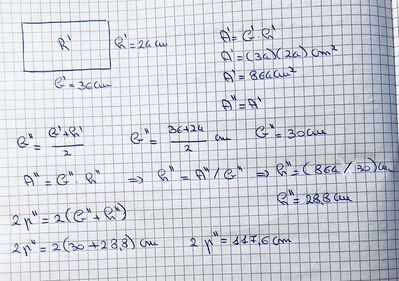 R'
h' = 24 cm
b' = 36 cm
A' = b' · h'
A' = (36)(24) cm²
A' = 864 cm²
A'' = A'
b'' = (b' + h')/2
b'' = (36 + 24)/2 cm
b'' = 30 cm
A'' = b'' · h'' ⇒ h'' = A'' / b'' ⇒ h'' = (864 / 30) cm
h'' = 28,8 cm
2p'' = 2(b'' + h'')
2p'' = 2(30 + 28,8) cm
2p'' = 117,6 cm